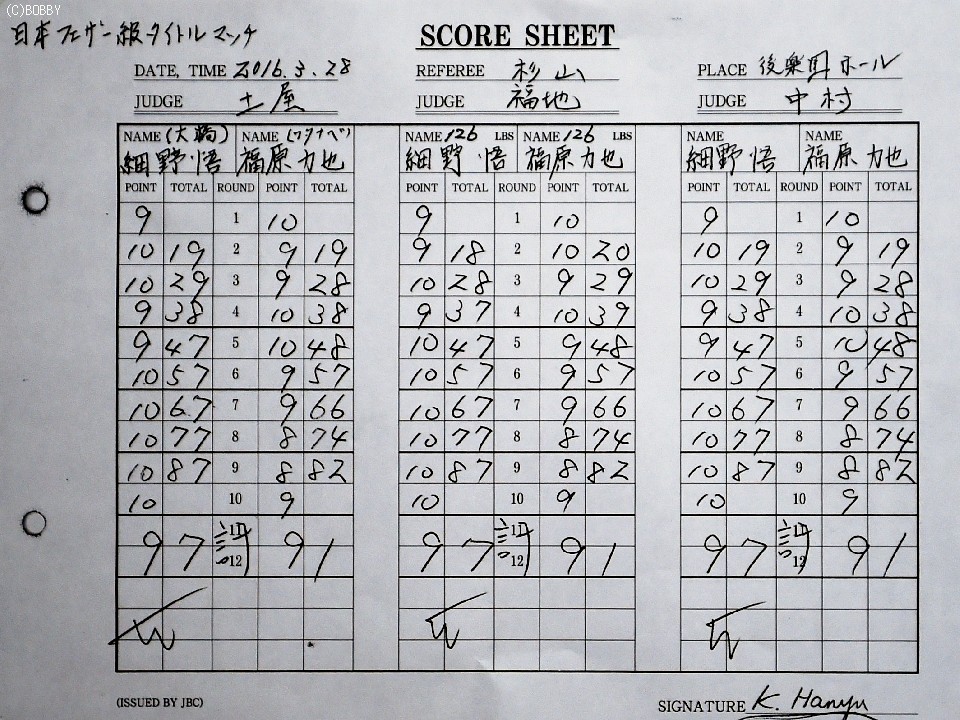 (C)BOBBY
日本フェザー級タイトルマッチ
SCORE SHEET
DATE, TIME 2016.3.28 REFEREE 杉山 PLACE 後楽園ホール
JUDGE 土屋 JUDGE 福地 JUDGE 中村
NAME (大橋) NAME (ワタナベ) NAME 126 LBS NAME 126 LBS NAME NAME
細野 悟 福原 力也 細野 悟 福原 力也 細野 悟 福原 力也
POINT TOTAL ROUND POINT TOTAL POINT TOTAL ROUND POINT TOTAL POINT TOTAL ROUND POINT TOTAL
9 1 10 9 1 10 9 1 10
10 19 2 9 19 9 18 2 10 20 10 19 2 9 19
10 29 3 9 28 10 28 3 9 29 10 29 3 9 28
9 38 4 10 38 9 37 4 10 39 9 38 4 10 38
9 47 5 10 48 10 47 5 9 48 9 47 5 10 48
10 57 6 9 57 10 57 6 9 57 10 57 6 9 57
10 67 7 9 66 10 67 7 9 66 10 67 7 9 66
10 77 8 8 74 10 77 8 8 74 10 77 8 8 74
10 87 9 8 82 10 87 9 8 82 10 87 9 8 82
10 10 9 10 10 9 10 10 9
11 11 11
97 91 97 91 97 91
12 12 12
(ISSUED BY JBC) SIGNATURE K. Hanyu